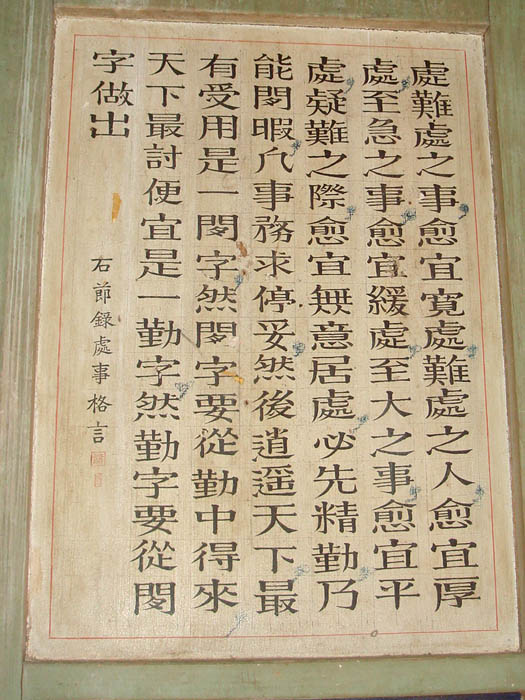 處難處之事愈宜寬處難處之人愈宜厚
處至急之事愈宜緩處至大之事愈宜平
處疑難之際愈宜無意居處必先精勤乃
能閑暇凡事務求停妥然後逍遥天下最
有受用是一閑字然閑字要從勤中得來
天下最討便宜是一勤字然勤字要從閑
字做出
右節錄處事格言